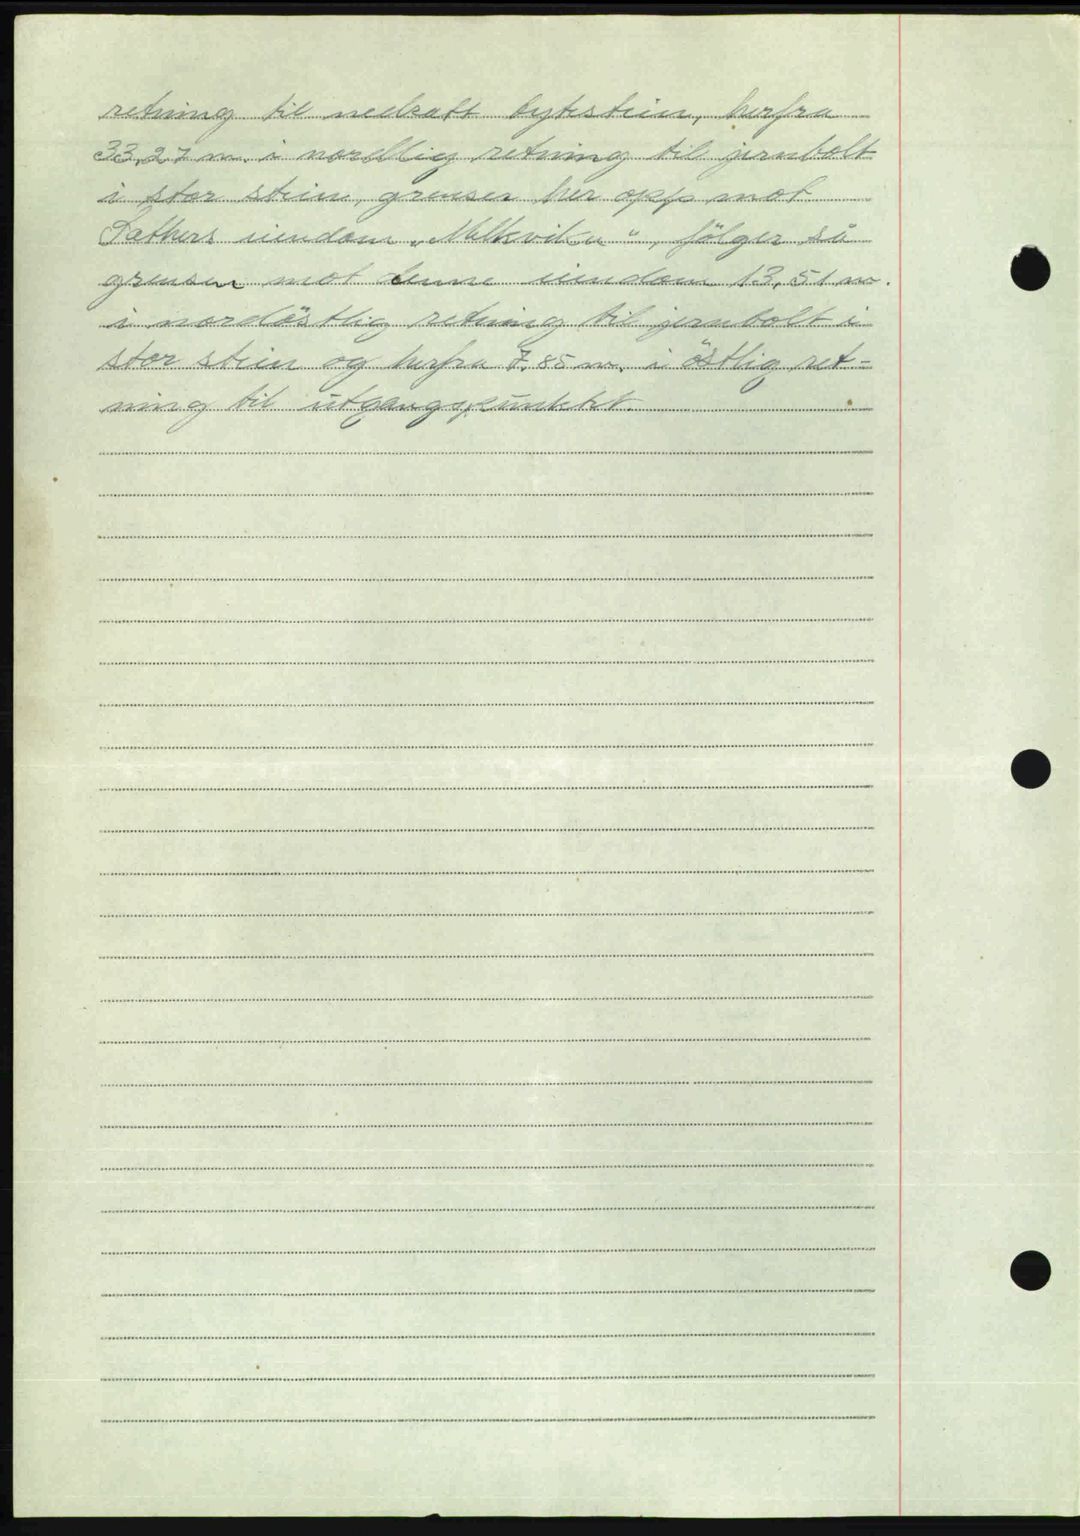 retning til nedsatt bytestein, herfra
33,27 m. i nordlig retning til jernbolt
i stor stein, grensen her opp mot
eiendom „ “, følger så
grensen mot denne eiendom 13,51 m.
i nordöstlig retning til jernbolt i
stor stein og herfra 7.85 m. i östlig ret-
ning til utgangspunktet.